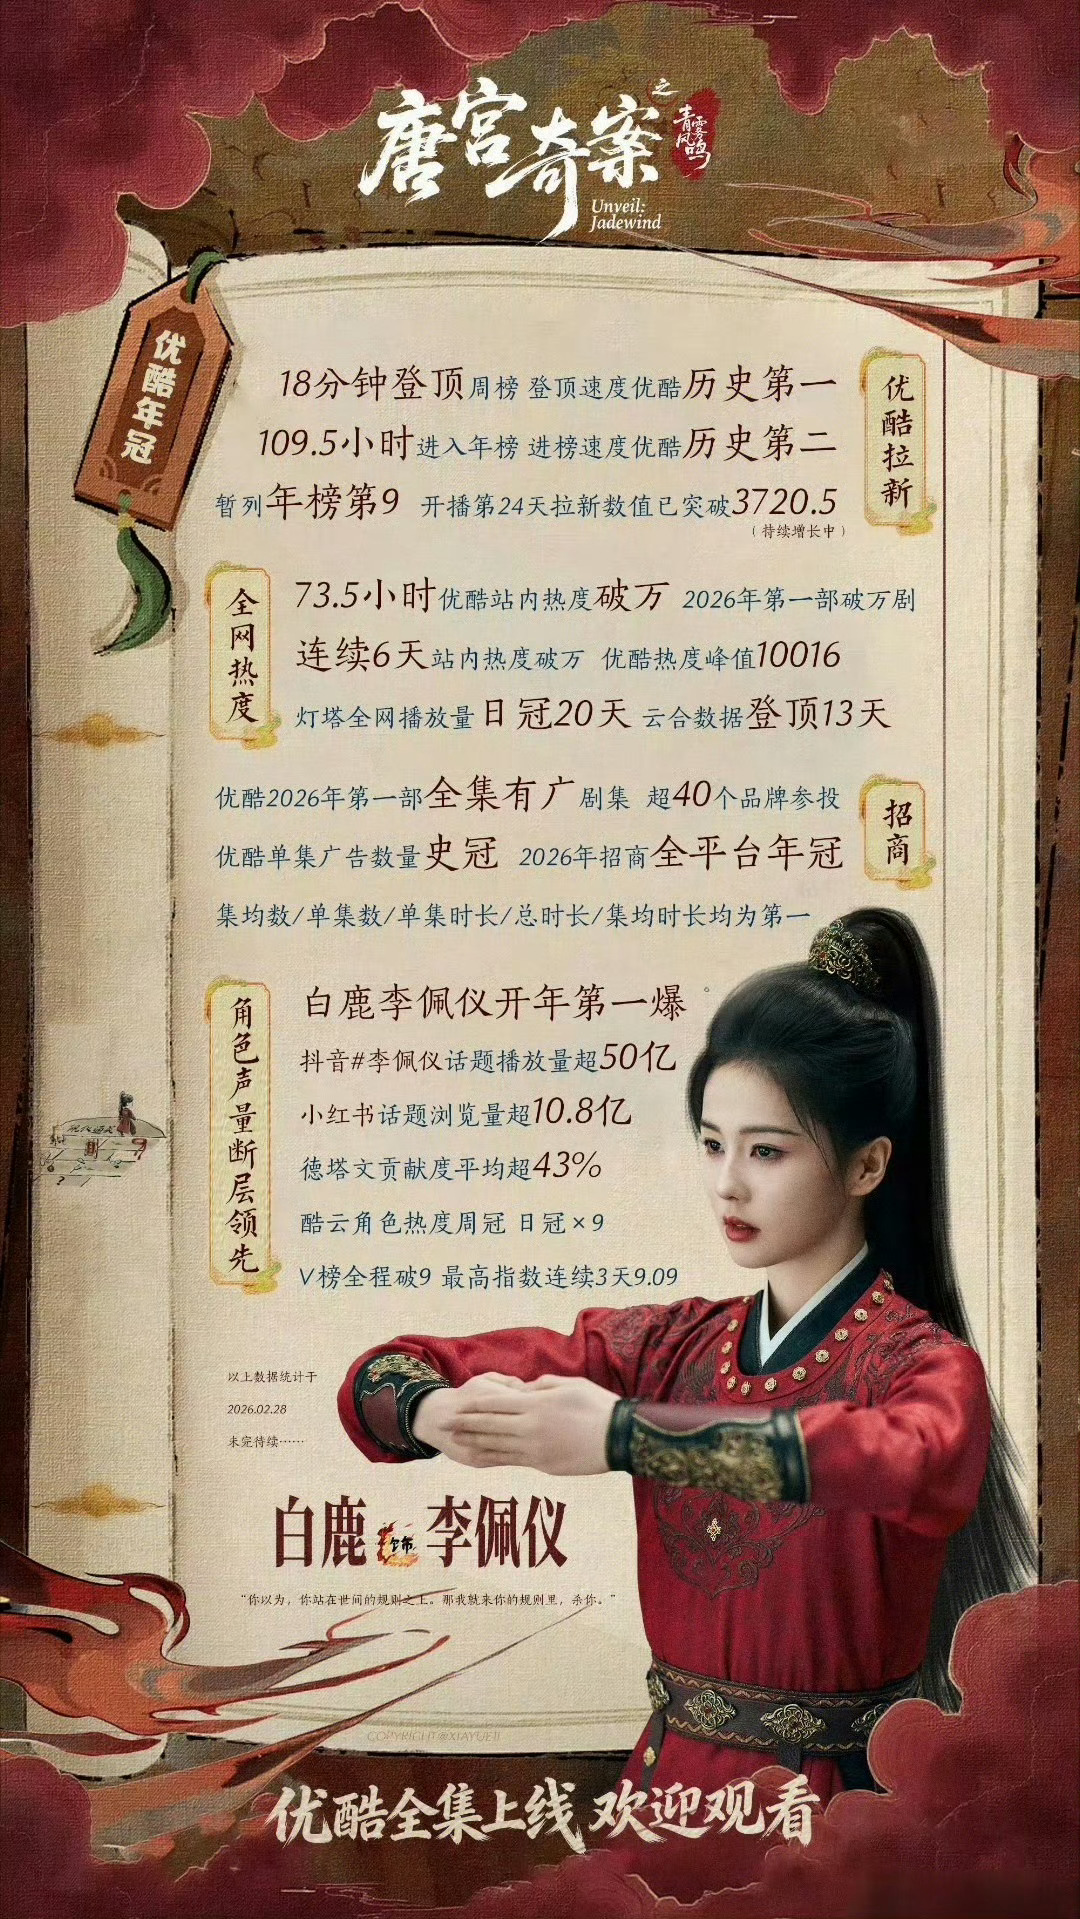 唐宫奇案
之
青雾风鸣
Unveil:
Jadewind
优酷年冠
优酷拉新
18分钟登顶周榜 登顶速度优酷历史第一
109.5小时进入年榜 进榜速度优酷历史第二
暂列年榜第9 开播第24天拉新数值已突破3720.5
(持续增长中)
全网热度
73.5小时优酷站内热度破万 2026年第一部破万剧
连续6天站内热度破万 优酷热度峰值10016
灯塔全网播放量日冠20天 云合数据登顶13天
招商
优酷2026年第一部全集有广剧集 超40个品牌参投
优酷单集广告数量史冠 2026年招商全平台年冠
集均数/单集数/单集时长/总时长/集均时长均为第一
角色声量断层领先
白鹿李佩仪开年第一爆。
抖音#李佩仪话题播放量超50亿
小红书话题浏览量超10.8亿
德塔文贡献度平均超43%
酷云角色热度周冠 日冠×9
V榜全程破9 最高指数连续3天9.09
以上数据统计于
2026.02.28
未完待续……
白鹿 饰 李佩仪
“你以为，你站在世间的规则之上。那我就来你的规则里，杀你。”
COPYRIGHT@XIAYUEJI
优酷全集上线 欢迎观看